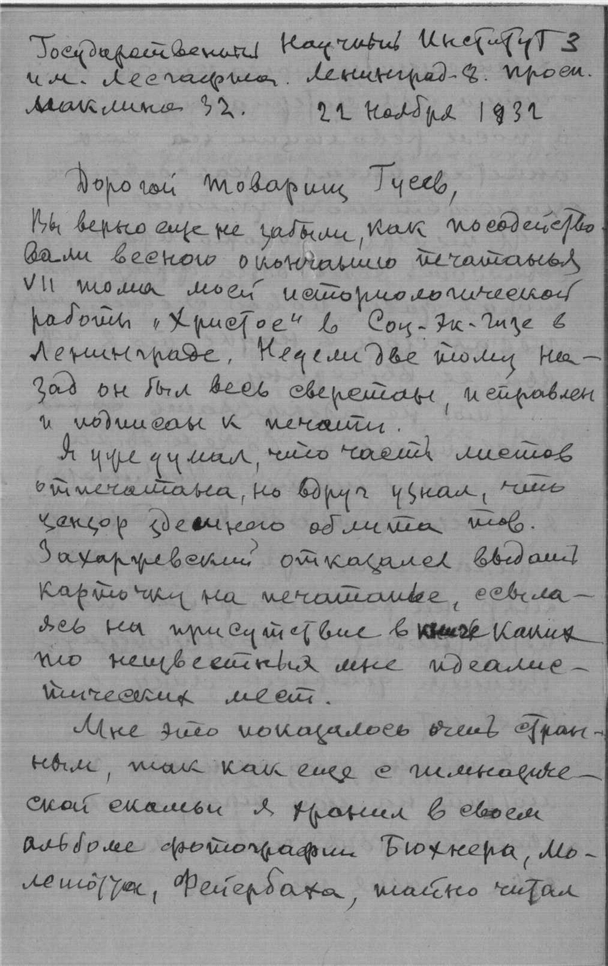 Государственный Научный Институт 3
им. Лесгафта. Ленинград-8. просп.
Маклина 32. 22 ноября 1932
Дорогой товарищ Гусев,
Вы верно еще не забыли, как посодейство-
вали весною окончанию печатанья
VII тома моей историологической
работы "Христос" в Соц-Эк-Гизе в
Ленинграде. Недели две тому на-
зад он был весь сверстан, исправлен
и подписан к печати.
Я уже думал, что часть листов
отпечатана, но вдруг узнал, что
цензор здешнего облита тов.
Захаржевский отказался выдать
карточку на печатанье, ссыла-
ясь на присутствие в книге каких
то неизвестных мне идеалис-
тических мест.
Мне это показалось очень стран-
ным, так как еще с гимназиче-
ской скамьи я хранил в своем
альбоме фотографии Бюхнера, Мо-
лешотта, Фейербаха, тайно читал